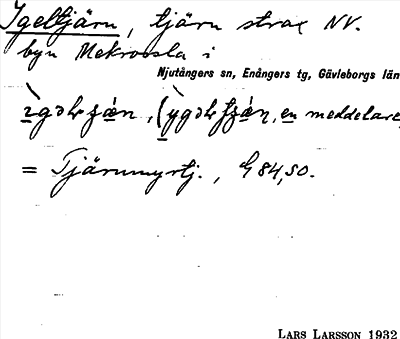 Igeltjärn, tjärn strax NV.
byn Mekrossla i
Njutångers sn, Enångers tg, Gävleborgs län
, ( , en meddelare,
= Tjärnmyrtj., 84,50.
LARS LARSSON 1932